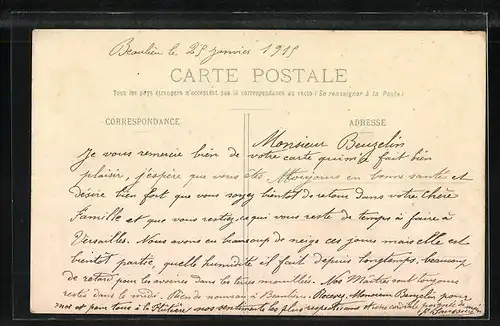 Beaulieu le 25 janvier 1915
CARTE POSTALE
Tous les pays étrangers n'acceptent pas la correspondance au recto (Se renseigner à la Poste)
CORRESPONDANCE
ADRESSE
Monsieur Beuzelin
Je vous remercie bien de votre carte qui m'a fait bien
plaisir, j'espère que vous êtes toujours en bonne santé et
désire bien fort que vous soyez bientôt de retour dans votre chère
Famille et que vous restiez ce qui vous reste de temps à faire à
Versailles. Nous avons eu beaucoup de neige ces jours mais elle est
bientôt partie, quelle humidité il fait depuis longtemps. beaucoup
de retard pour les avoines dans les terres mouillées. Nos Maîtres sont toujours
restés dans le Rien de nouveau à Beaulieu. Recevez, Monsieur Beuzelin pour
moi et pour tous à mes sentiments les plus respectueux